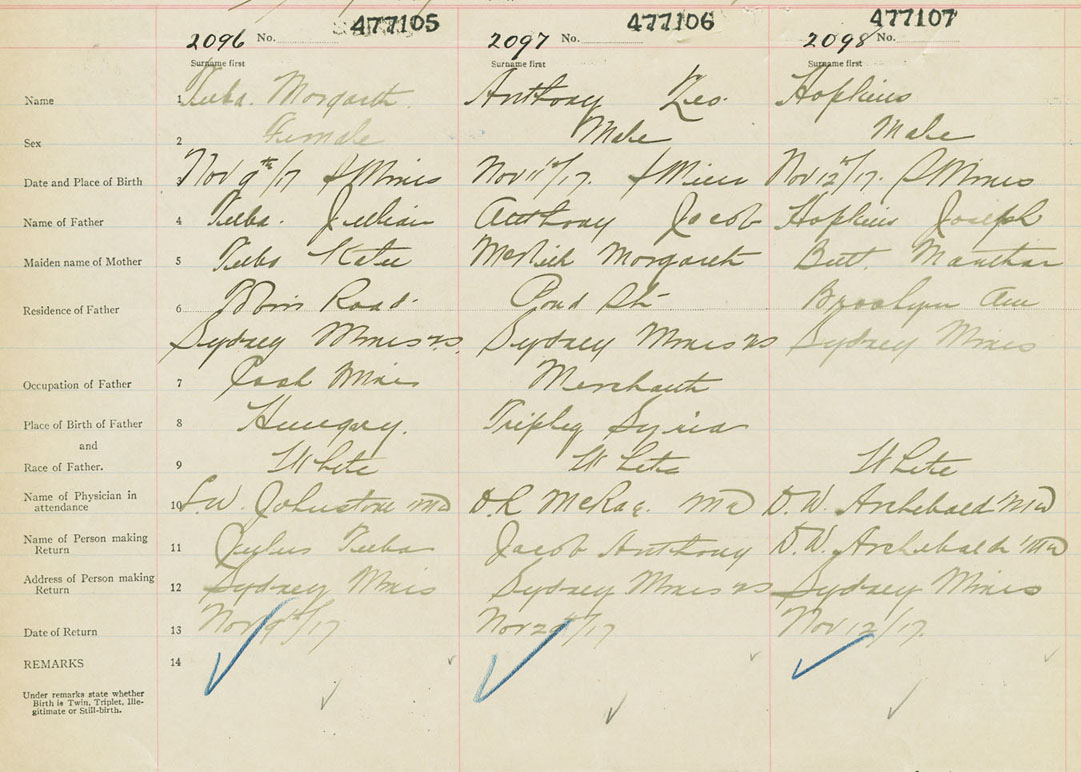 477105 477106 477107
2096 No. 2097 No. 2098 No.
Surname first Surname first Surname first
Name 1 Margaret Anthony Leo. Hopkins
Sex 2 Female Male Male
Date and Place of Birth 3 Nov 9th/17 S Mines Nov 11th/17. S Mines Nov 12th/17. S Mines
Name of Father 4 Anthony Jacob Hopkins Joseph
Maiden name of Mother 5 Katie Margaret
Residence of Father 6 Road Pond St. Brooklyn Ave
Sydney Mines NS. Sydney Mines NS Sydney Mines
Occupation of Father 7 Coal Merchant
Place of Birth of Father 8 Hungary. Syria
and
Race of Father. 9 White White White
Name of Physician in
attendance 10 Johnstone MD D.R McRae. MD D.W. Archebald MD
Name of Person making
Return 11 Jacob Anthony D.W. Archebald MD
Address of Person making
Return 12 Sydney Mines Sydney Mines NS Sydney Mines
Date of Return 13 Nov 9th/17 Nov 12/17.
REMARKS 14
Under remarks state whether
Birth is Twin, Triplet, Ille-
gitimate or Still-birth.